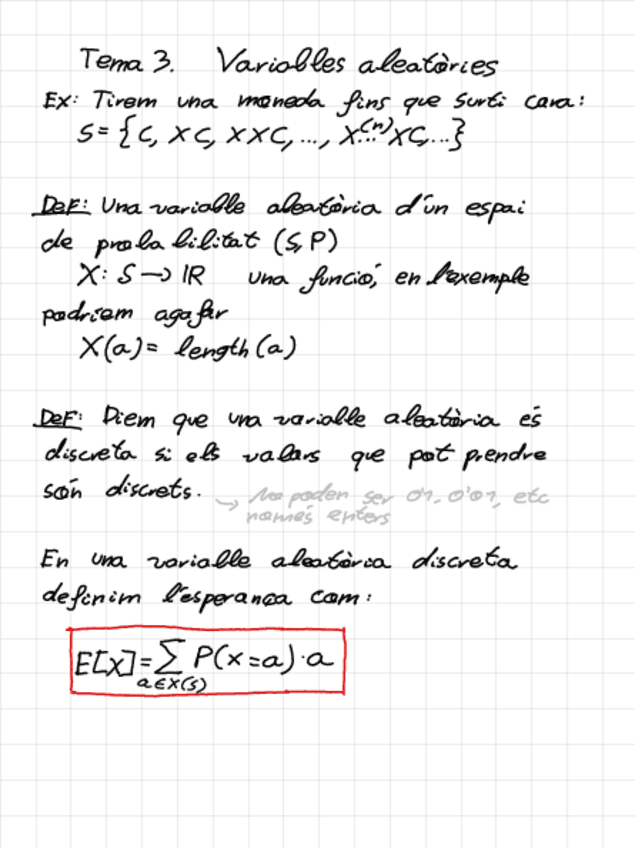 Tema 3. Variables aleatòries
Ex: Tirem una moneda fins que surti cara:
S = {C, XC, XXC, ..., X.(n).XC, ...}
Def: Una variable aleatòria d'un espai
de probabilitat (S, P)
X: S → ℝ una funció, en l'exemple
podríem agafar
X(a) = length(a)
Def: Diem que una variable aleatòria és
discreta si els valors que pot prendre
són discrets. → No poden ser 0'1, 0'01, etc
només enters
En una variable aleatòria discreta
definim l'esperança com:
E[X] = ∑ P(X=a)·a
a∈X(S)